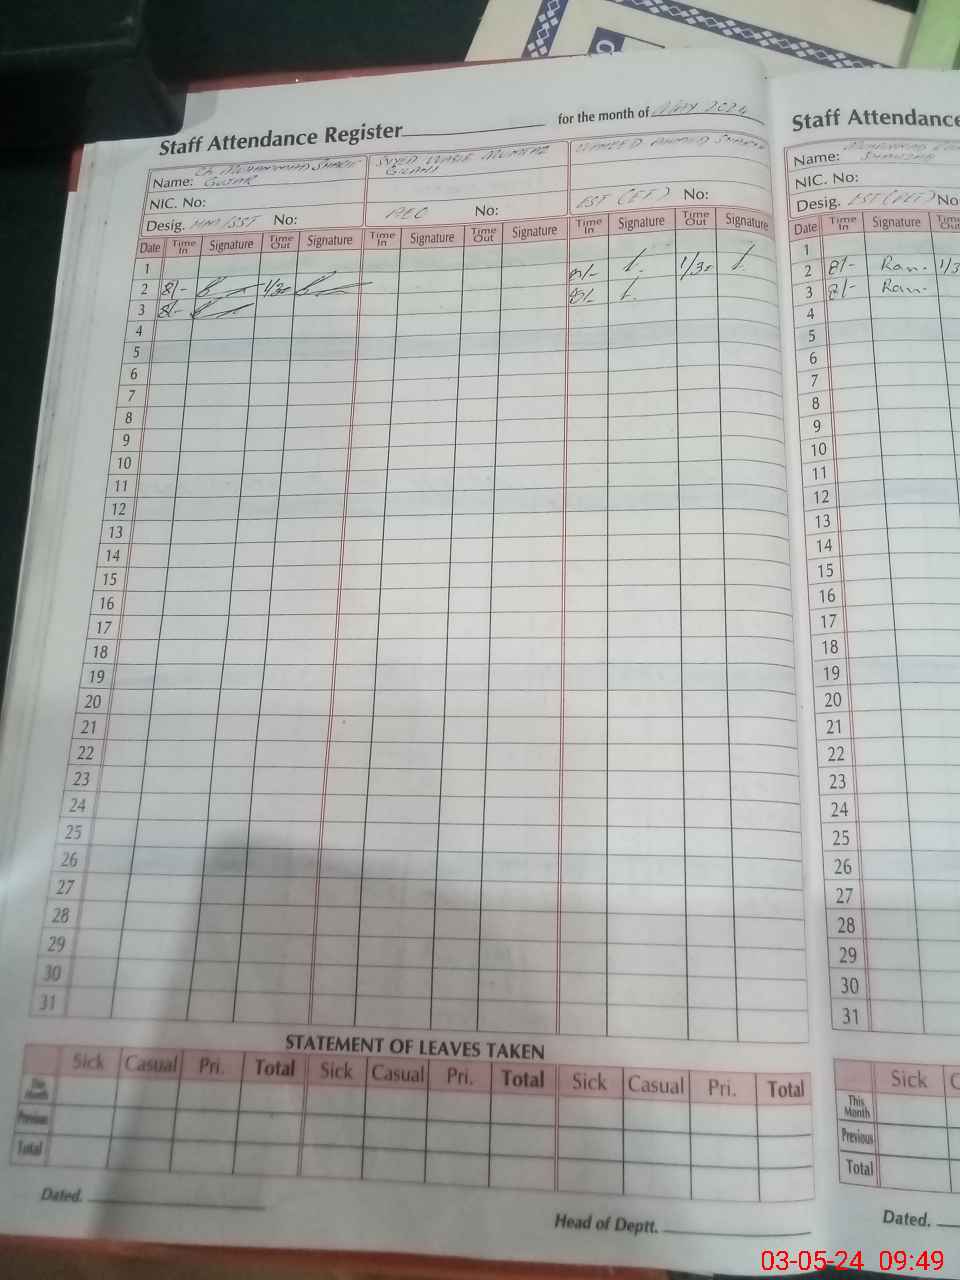 Staff Attendance Register for the month of May 2024
Name: Ch Muhammad Shafi Gujjar
Syed Waris Mumtaz Gilani
Waheed Ahmed
NIC. No:
Desig. HM/SST No:
AEO No:
EST (EE) No:
Date Time In Signature Time Out Signature Time In Signature Time Out Signature Time In Signature Time Out Signature
1
2 8/- 1/30 8/- 1/30
3 8/- 8/-
4
5
6
7
8
9
10
11
12
13
14
15
16
17
18
19
20
21
22
23
24
25
26
27
28
29
30
31
STATEMENT OF LEAVES TAKEN
Sick Casual Pri. Total Sick Casual Pri. Total Sick Casual Pri. Total
This Month
Previous
Total
Dated.
Head of Deptt.
Staff Attendance
Name: Muhammad
NIC. No:
Desig. EST (PET) No
Date Time In Signature Time Out
1
2 8/- Ram. 1/3
3 8/- Ram.
4
5
6
7
8
9
10
11
12
13
14
15
16
17
18
19
20
21
22
23
24
25
26
27
28
29
30
31
Sick C
This Month
Previous
Total
Dated.
03-05-24 09:49